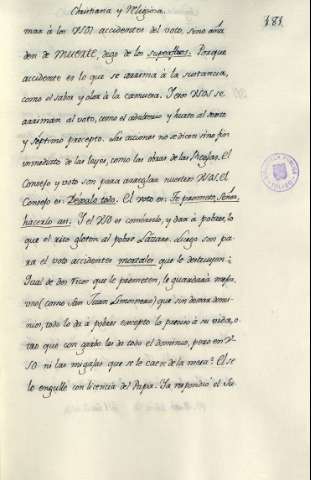 Christiana y Mystica.
181.
mar à los USOS accidentes del voto, sino aña-
den de MUERTE, digo de los superfluos. Porque
accidente es lo que se arrima à la sustancia,
como el sabor y olor à la camuesa. Y esos USOS se
arriman al voto, como el adulterio y hurto al sexto
y septimo precepto. Las acciones no se dicen sino fin
inmediato de las leyes, como las obras de las Reglas. El
Consejo y voto son para arreglar nuestro USO. El
Consejo es: Dexalo todo. El voto es: Te prometo, Señor,
hacerlo asi. Y el USO es cumplirlo, y dar à pobres, lo
que el rico gloton al pobre Lazaro. Luego son pa-
ra el voto accidentes mortales que le destruyen.
Igual de dos ricos que le prometen, le guardaria mejor,
uno (como San Juan Limosnero) que sin dexar domi-
nio, todo lo dà à pobres excepto lo preciso à su vida, o
otro que con grado les dà todo el dominio, pero en U-
SO ni las migajas que se le caen de la mesa? El se
lo engulle con licencia del Papa. Ya respondiò el Se-